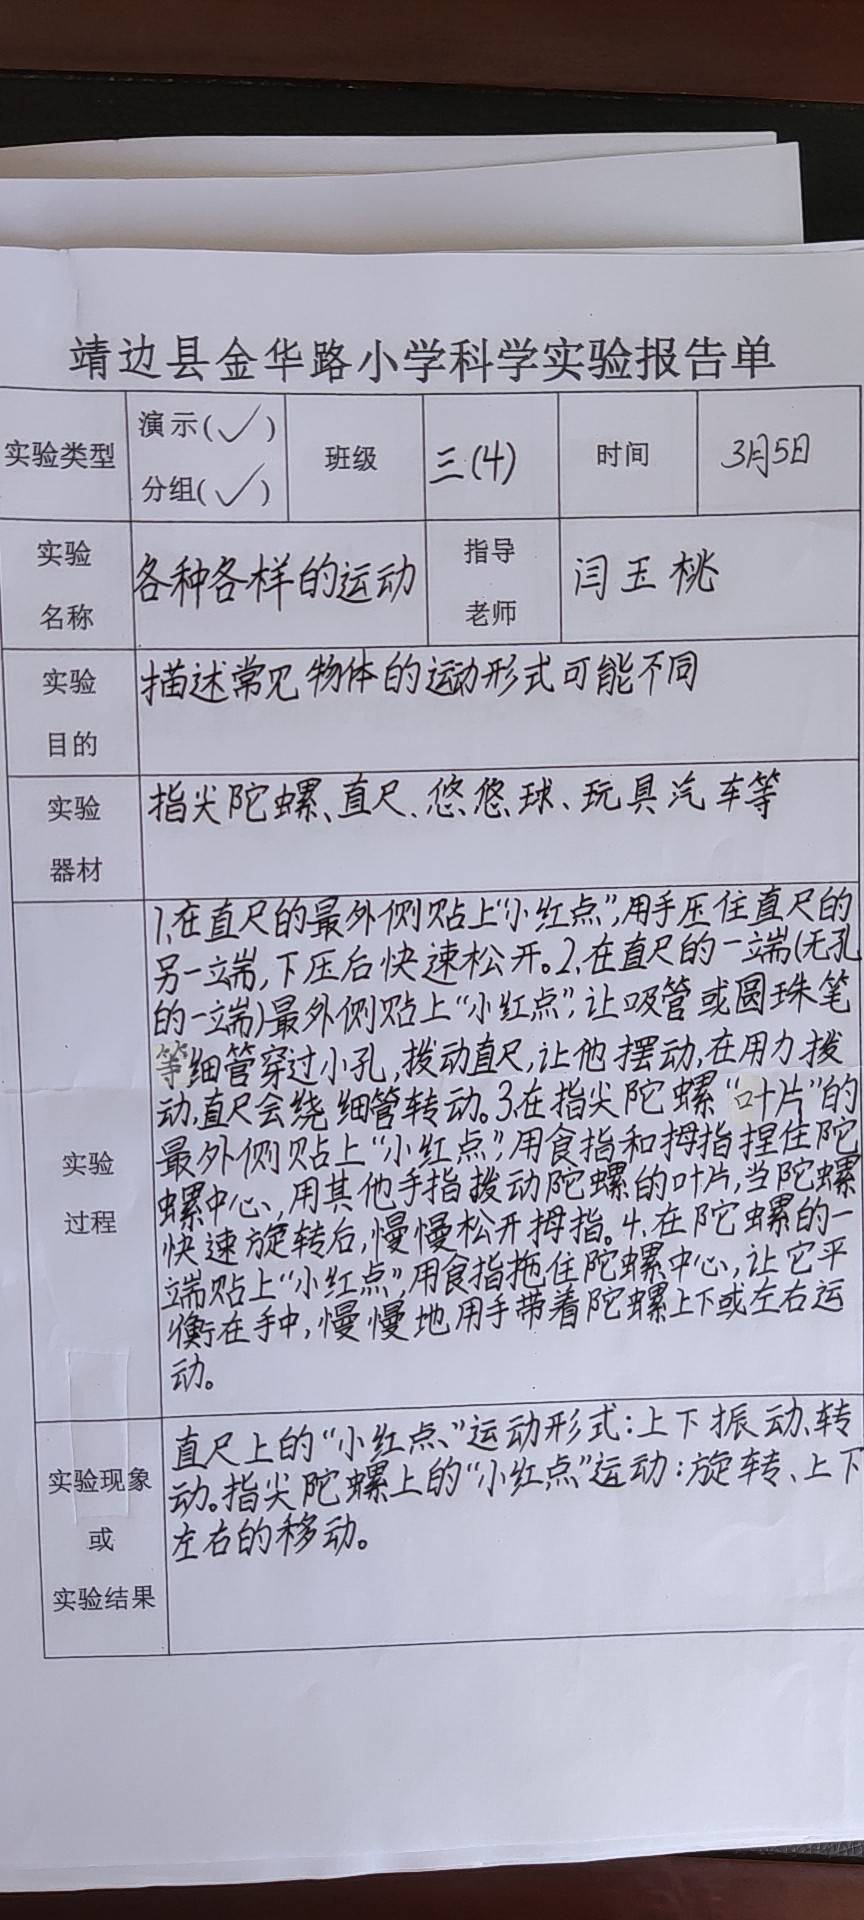 靖边县金华路小学科学实验报告单
实验类型
演示(✓)
分组(✓)
班级
三(4)
时间
3月5日
实验
名称
各种各样的运动
指导
老师
闫玉桃
实验
目的
描述常见物体的运动形式可能不同
实验
器材
指尖陀螺、直尺、悠悠球、玩具汽车等
实验
过程
1、在直尺的最外侧贴上“小红点”,用手压住直尺的
另一端,下压后快速松开。2、在直尺的一端(无孔
的一端)最外侧贴上“小红点”,让吸管或圆珠笔
等细管穿过小孔,拨动直尺,让他摆动,在用力拨
动,直尺会绕细管转动。3、在指尖陀螺“叶片”的
最外侧贴上“小红点”,用食指和拇指捏住陀
螺中心,用其他手指拨动陀螺的叶片,当陀螺
快速旋转后,慢慢松开拇指。4、在陀螺的一
端贴上“小红点”,用食指拖住陀螺中心,让它平
衡在手中,慢慢地用手带着陀螺上下或左右运
动。
实验现象
或
实验结果
直尺上的“小红点”运动形式:上下振动、转
动。指尖陀螺上的“小红点”运动:旋转、上下
左右的移动。